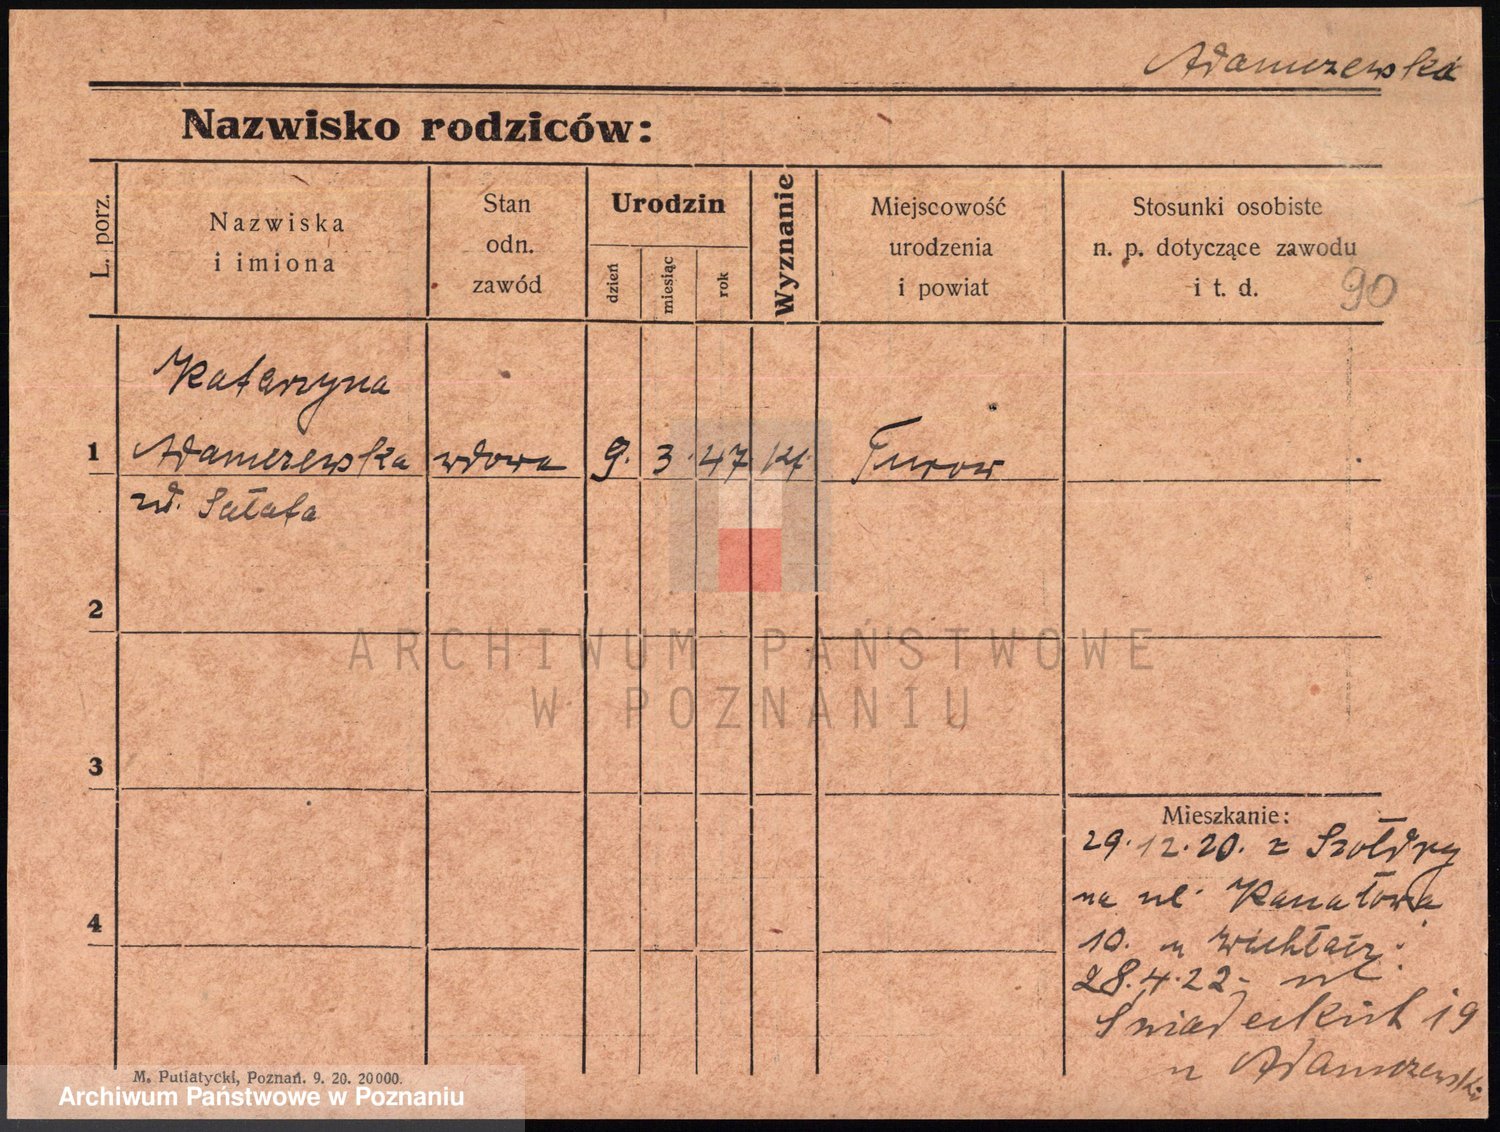 Adamczewska
Nazwisko rodziców:
L. porz.
Nazwiska
i imiona
Stan
odn.
zawód
Urodzin
dzień
miesiąc
rok
Wyznanie
Miejscowość
urodzenia
i powiat
Stosunki osobiste
n. p. dotyczące zawodu
i t. d.
90
Katarzyna
1 Adamczewska wdowa 9. 3. 47 kt. Turow
zd. Sałata
2
3
4
Mieszkanie:
29.12.20. z Szołdry
na ul. Kanałowa
10. u
28.4.22 - ul
Śniadeckich 19
u Adamczewski
M. Putiatycki, Poznań. 9. 20. 20000.
ARCHIWUM PAŃSTWOWE
W POZNANIU
Archiwum Państwowe w Poznaniu